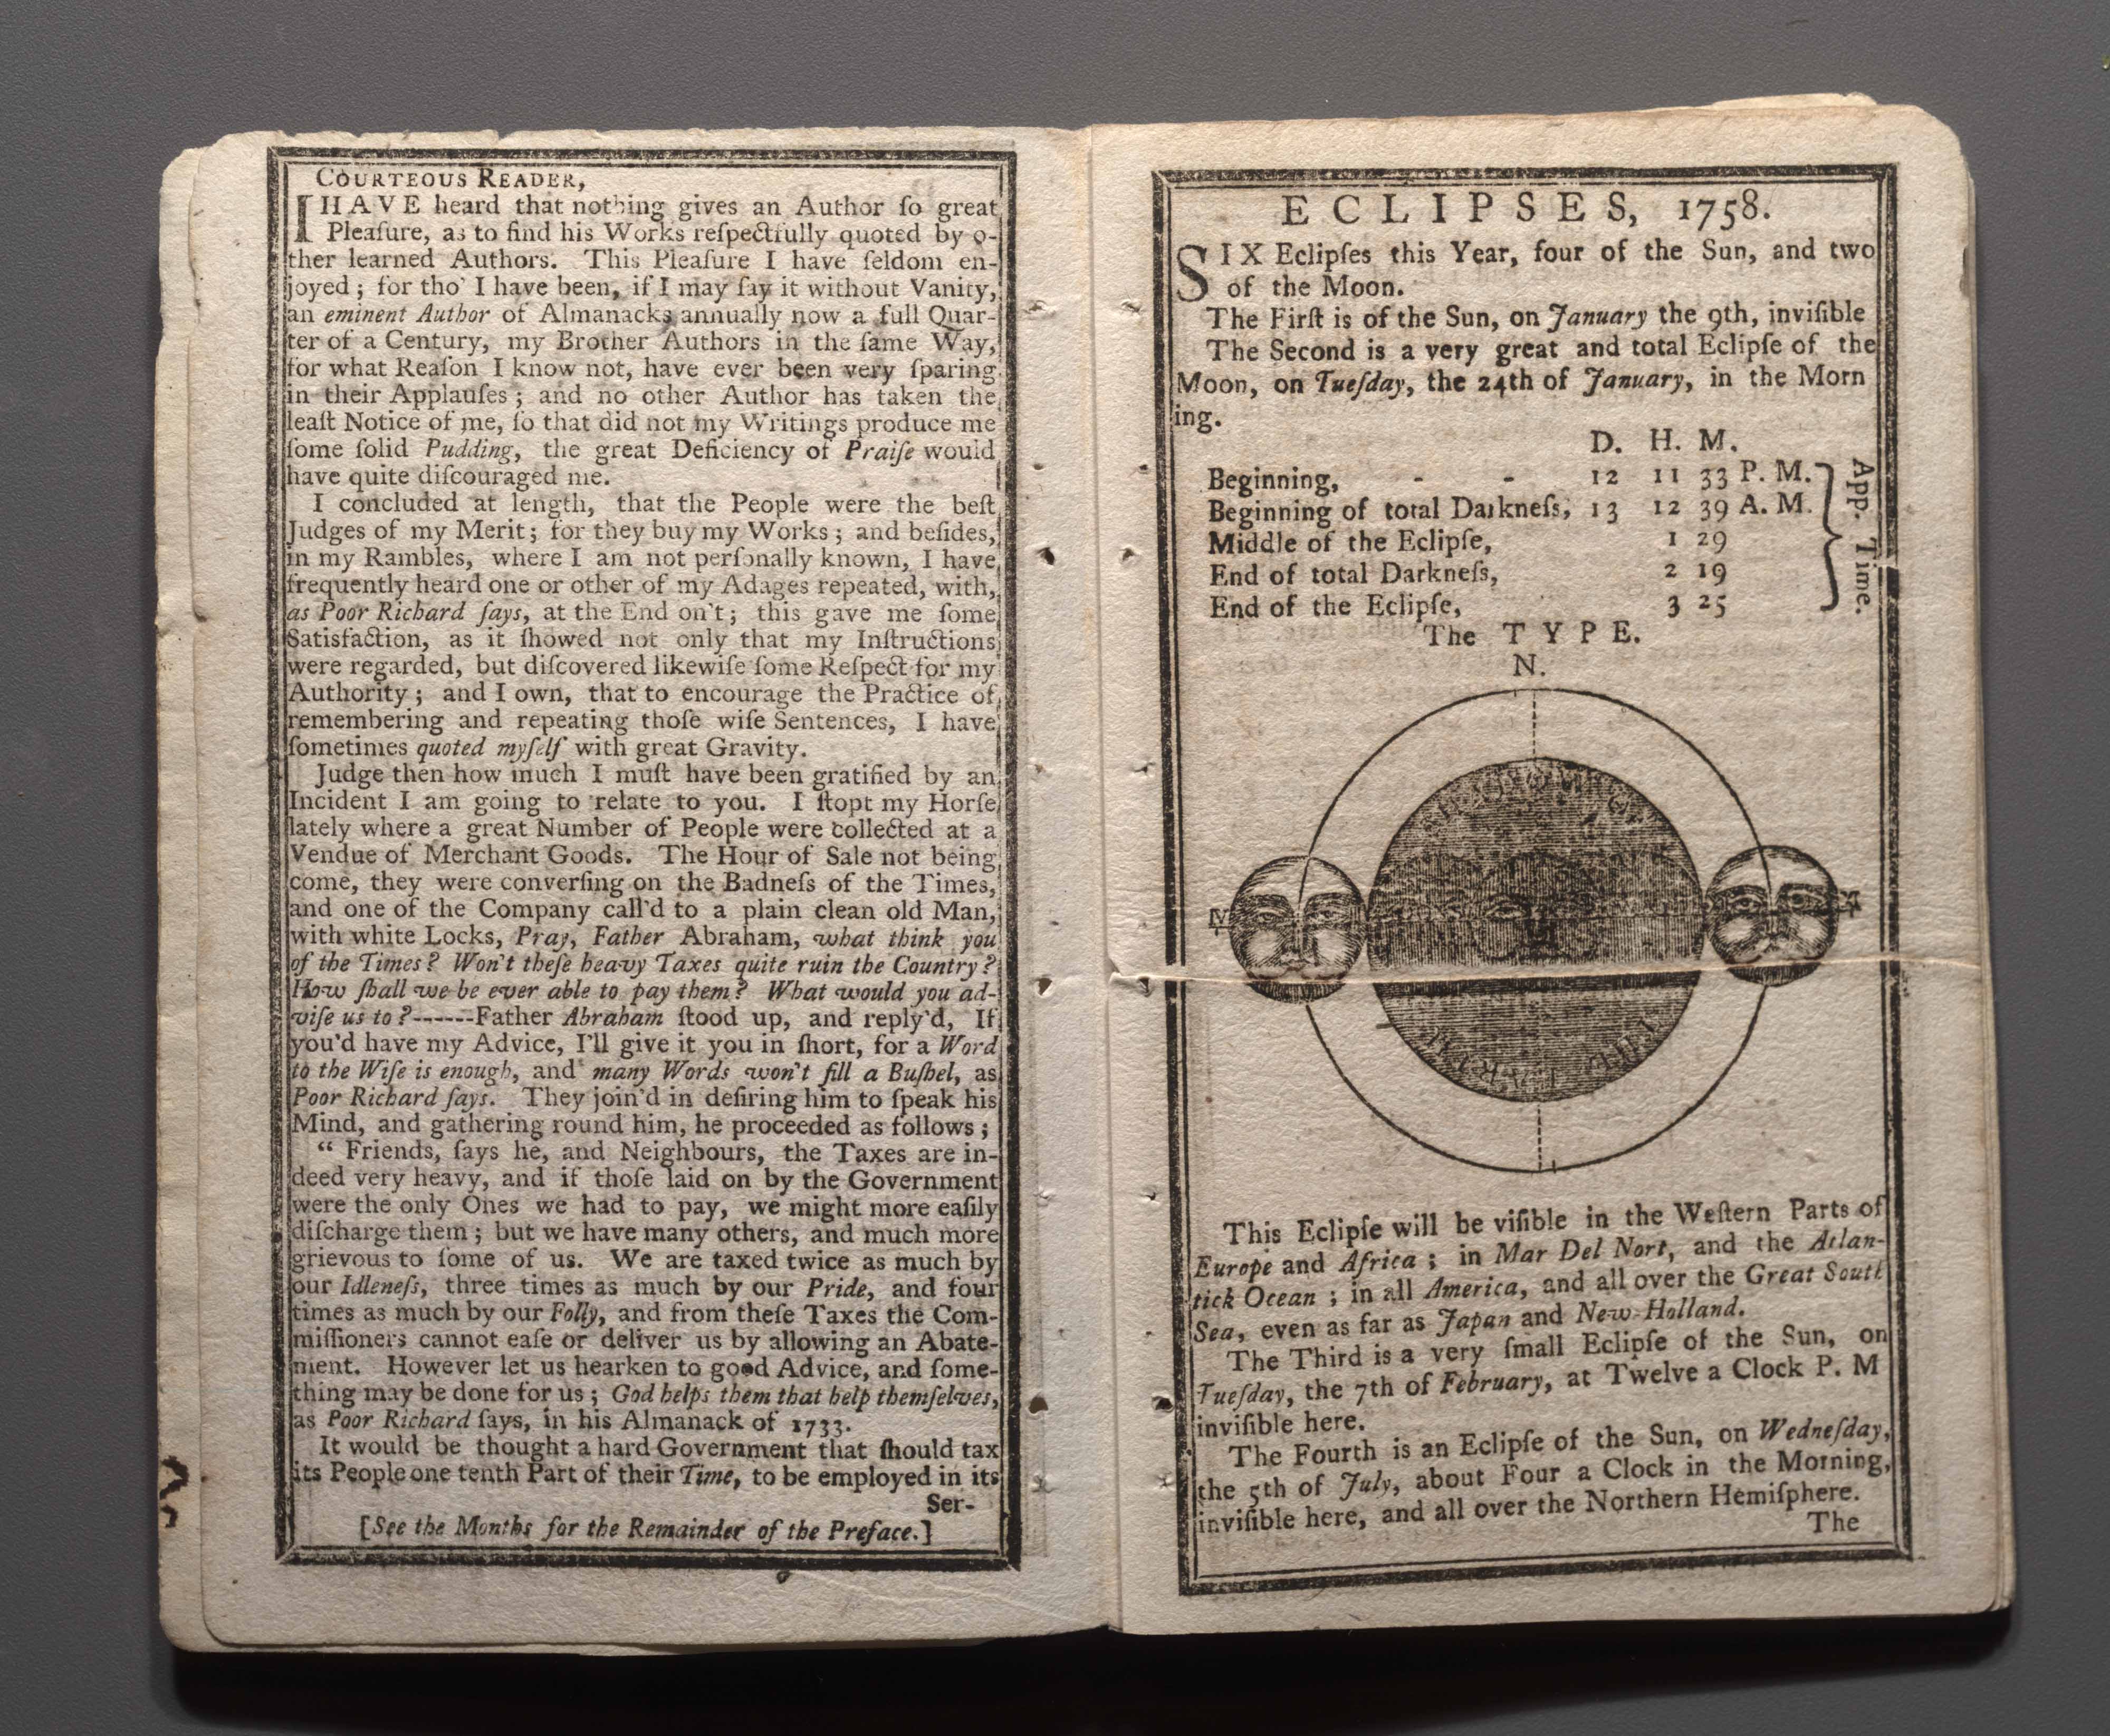 COURTEOUS READER,
I HAVE heard that nothing gives an Author ſo great
Pleaſure, as to find his Works reſpectfully quoted by o-
ther learned Authors. This Pleaſure I have ſeldom en-
joyed; for tho' I have been, if I may ſay it without Vanity,
an eminent Author of Almanacks annually now a full Quar-
ter of a Century, my Brother Authors in the ſame Way,
for what Reaſon I know not, have ever been very ſparing
in their Applauſes; and no other Author has taken the
leaſt Notice of me, ſo that did not my Writings produce me
ſome ſolid Pudding, the great Deficiency of Praiſe would
have quite diſcouraged me.
I concluded at length, that the People were the beſt
Judges of my Merit; for they buy my Works; and beſides,
in my Rambles, where I am not perſonally known, I have
frequently heard one or other of my Adages repeated, with,
as Poor Richard ſays, at the End on't; this gave me ſome
Satisfaction, as it ſhowed not only that my Inſtructions
were regarded, but diſcovered likewiſe ſome Reſpect for my
Authority; and I own, that to encourage the Practice of
remembering and repeating thoſe wiſe Sentences, I have
ſometimes quoted myſelf with great Gravity.
Judge then how much I muſt have been gratified by an
Incident I am going to relate to you. I ſtopt my Horſe
lately where a great Number of People were collected at a
Vendue of Merchant Goods. The Hour of Sale not being
come, they were converſing on the Badneſs of the Times,
and one of the Company call'd to a plain clean old Man,
with white Locks, Pray, Father Abraham, what think you
of the Times? Won't theſe heavy Taxes quite ruin the Country?
How ſhall we be ever able to pay them? What would you ad-
viſe us to?------Father Abraham ſtood up, and reply'd, If
you'd have my Advice, I'll give it you in ſhort, for a Word
to the Wiſe is enough, and many Words won't fill a Buſhel, as
Poor Richard ſays. They join'd in deſiring him to ſpeak his
Mind, and gathering round him, he proceeded as follows;
“ Friends, ſays he, and Neighbours, the Taxes are in-
deed very heavy, and if thoſe laid on by the Government
were the only Ones we had to pay, we might more eaſily
diſcharge them; but we have many others, and much more
grievous to ſome of us. We are taxed twice as much by
our Idleneſs, three times as much by our Pride, and four
times as much by our Folly, and from theſe Taxes the Com-
miſſioners cannot eaſe or deliver us by allowing an Abate-
ment. However let us hearken to good Advice, and ſome-
thing may be done for us; God helps them that help themſelves,
as Poor Richard ſays, in his Almanack of 1733.
It would be thought a hard Government that ſhould tax
its People one tenth Part of their Time, to be employed in its
Ser-
[See the Months for the Remainder of the Preface.]
ECLIPSES, 1758.
SIX Eclipſes this Year, four of the Sun, and two
of the Moon.
The Firſt is of the Sun, on January the 9th, inviſible
The Second is a very great and total Eclipſe of the
Moon, on Tueſday, the 24th of January, in the Morn
ing.
D. H. M.
Beginning, - - 12 11 33 P. M.
Beginning of total Darkneſs, 13 12 39 A. M.
Middle of the Eclipſe, 1 29
End of total Darkneſs, 2 19
End of the Eclipſe, 3 25
App. Time.
The TYPE.
N.
This Eclipſe will be viſible in the Weſtern Parts of
Europe and Africa; in Mar Del Nort, and the Atlan-
tick Ocean; in all America, and all over the Great South
Sea, even as far as Japan and New-Holland.
The Third is a very ſmall Eclipſe of the Sun, on
Tueſday, the 7th of February, at Twelve a Clock P. M
inviſible here.
The Fourth is an Eclipſe of the Sun, on Wedneſday,
the 5th of July, about Four a Clock in the Morning,
inviſible here, and all over the Northern Hemiſphere.
The